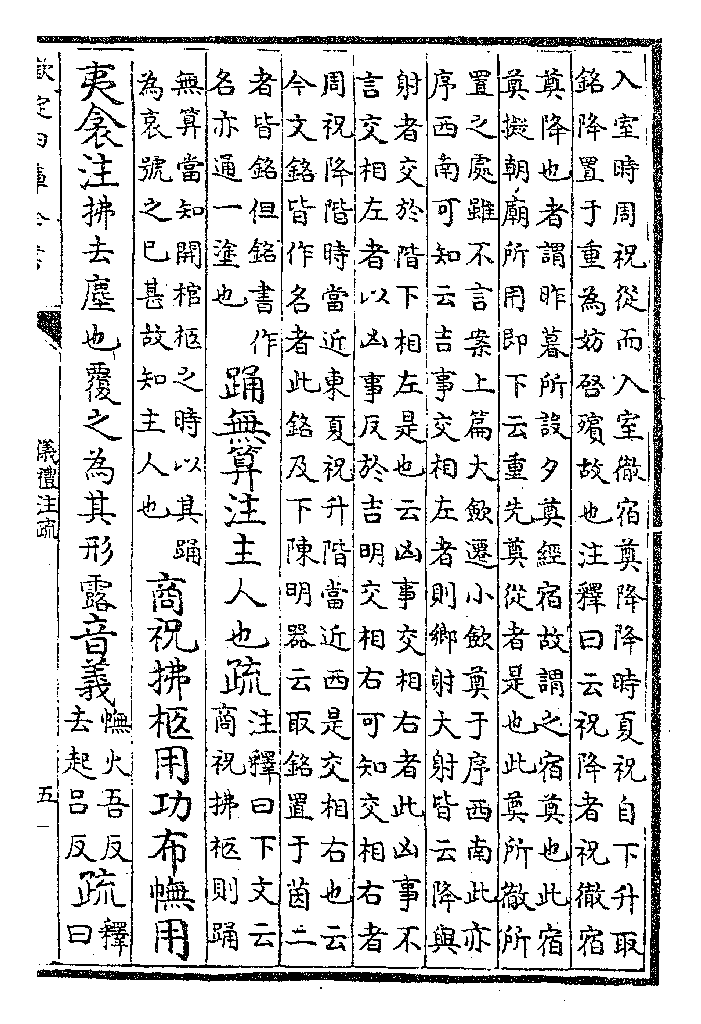 入室時周祝從而入室徹宿奠降降時夏祝自下升取
銘降置于重為妨啓殯故也注釋曰云祝降者祝徹宿
奠降也者謂昨暮所設夕奠經宿故謂之宿奠也此宿
奠擬朝廟所用即下云重先奠從者是也此奠所徹所
置之處雖不言案上篇大斂遷小斂奠于序西南此亦
序西南可知云吉事交相左者則鄉射大射皆云降與
射者交於階下相左是也云凶事交相右者此凶事不
言交相左者以凶事反於吉明交相右可知交相右者
周祝降階時當近東夏祝升階當近西是交相右也云
今文銘皆作名者此銘及下陳明器云取銘置于茵二
者皆銘但銘書作
名亦通一塗也
踊無算注主人也疏
注釋曰下文云
商祝拂柩則踊
無算當知開棺柩之時以其踊
為哀號之已甚故知主人也
商祝拂柩用功布幠用
夷衾注拂去塵也覆之為其形露音義
幠火吾反
去起呂反
疏
釋
曰
欽定四庫全書
儀禮注疏
五